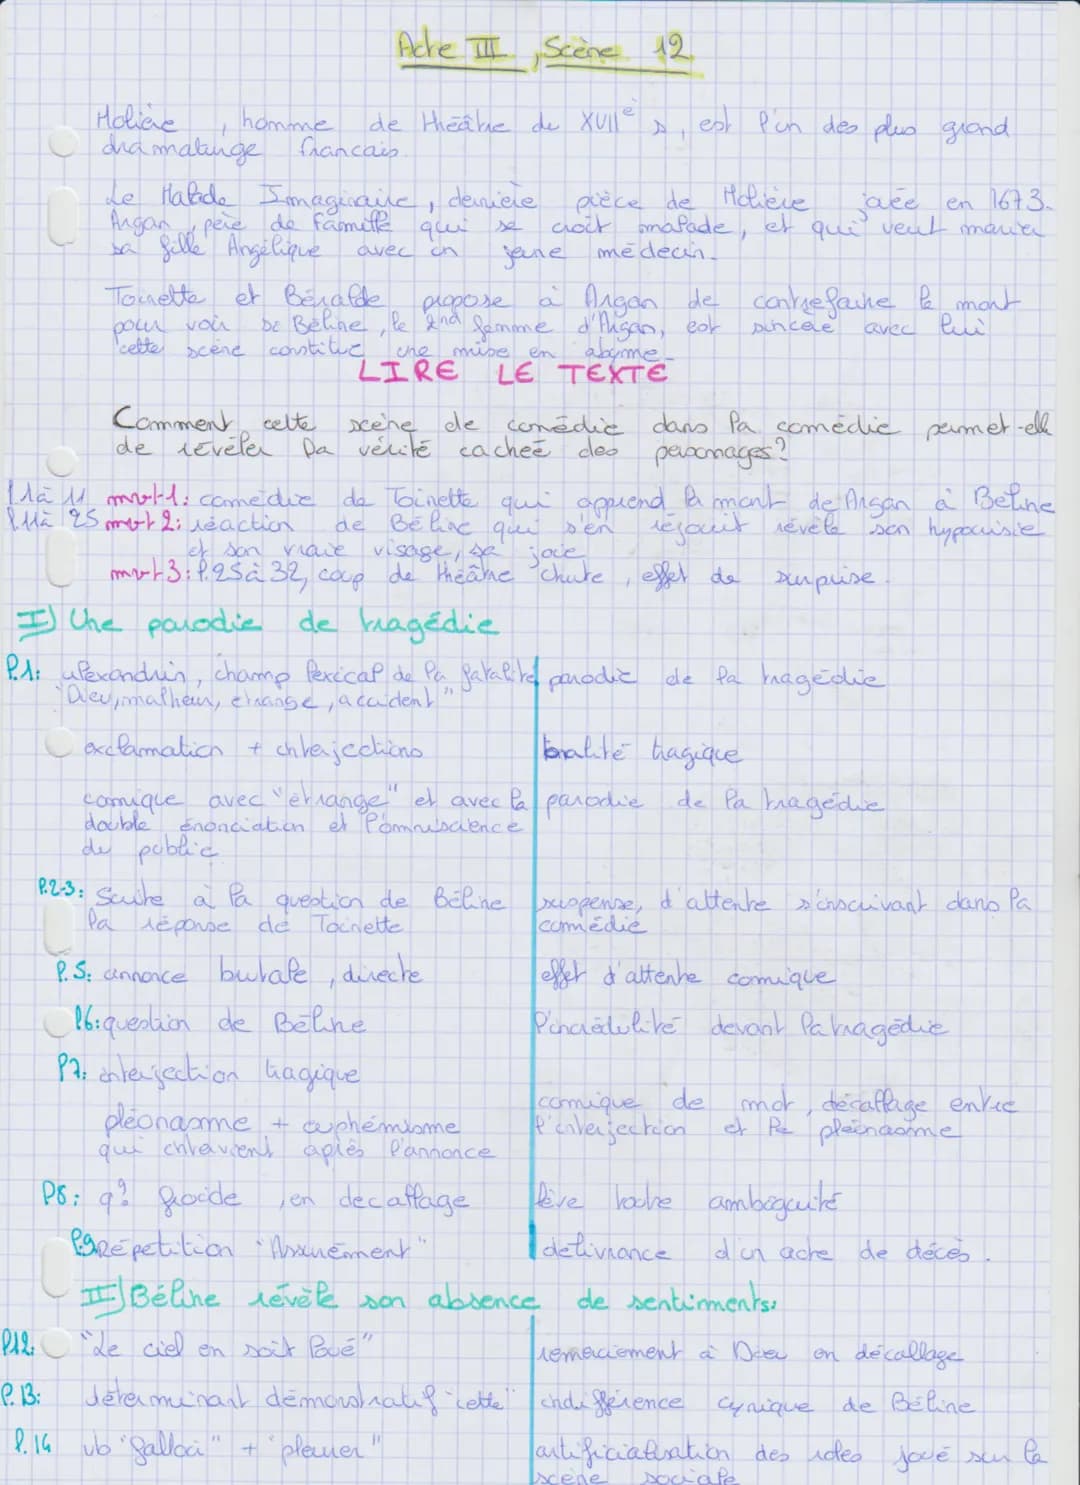 Acte III, Scène 12
Molière, homme de théâtre du XVIIè s, est l'un des plus grand
dramaturge francais.
Le Malade Imaginaire, dernière pièce de Molière jouée en 1673.
Argan, père de famille qui se croit malade, et qui veut marier
sa fille Angélique avec un jeune médecin.
Toinette et Béralde propose à Argan de contrefaire le mort
pour voir si Béline, la 2nd femme d'Argan, est sincère avec lui
cette scène constitue une mise en abyme.
LIRE LE TEXTE
Comment cette scène de comédie dans la comédie permet-elle
de révéler la vérité cachée des personnages?
l.1à 11 mvt1: comédie de Toinette qui apprend la mort de Argan à Béline
l.11à 25 mvt 2: réaction de Béline qui s'en réjouit révèle son hypocrisie
et son vraie visage, sa joie
mvt3: l.25à 32, coup de théâtre chute, effet de surprise.
I) Une parodie de tragédie
l.1: alexandrin, champ lexical de la fatalité parodie de la tragédie
"Dieu, malheur, étrange, accident"
exclamation + interjections tonalité tragique
comique avec "étrange" et avec la parodie de la tragédie
double énonciation et l'omniscience
du public
l.2-3: Suite à la question de Béline suspense, d'attente s'inscrivant dans la
la réponse de Toinette comédie
l.5: annonce brutale, directe effet d'attente comique
l6: question de Béline l'incrédulité devant la tragédie
l7: interjection tragique
comique de mot, décallage entre
pléonasme + euphémisme l'interjection et le pléonasme
qui intervient après l'annonce
l8: q? froide, en decallage lève toute ambiguité
l.9 Répétition "Assurément" délivrance d'un acte de décès.
II) Béline révèle son absence de sentiments:
l12: "Le ciel en soit loué" remerciement à Dieu en décallage
l.13: déterminant démonstratif "cette" indifférence cynique de Béline
l.14 vb "falloir" + "pleurer" artificialisation des rôles joué sur la
scène sociale